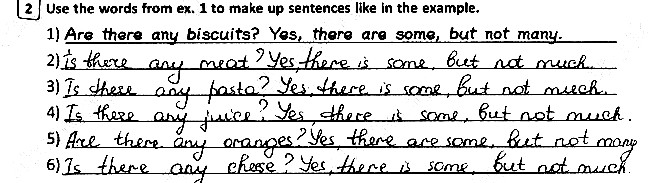 2 Use the words from ex. 1 to make up sentences like in the example.
1) Are there any biscuits? Yes, there are some, but not many.
2) is there any meat? Yes, there is some, but not much.
3) Is there any pasta? Yes, there is some, but not much.
4) Is there any juice? Yes, there is some, but not much.
5) Are there any oranges? Yes, there are some, but not many
6) Is there any cheese? Yes, there is some, but not much